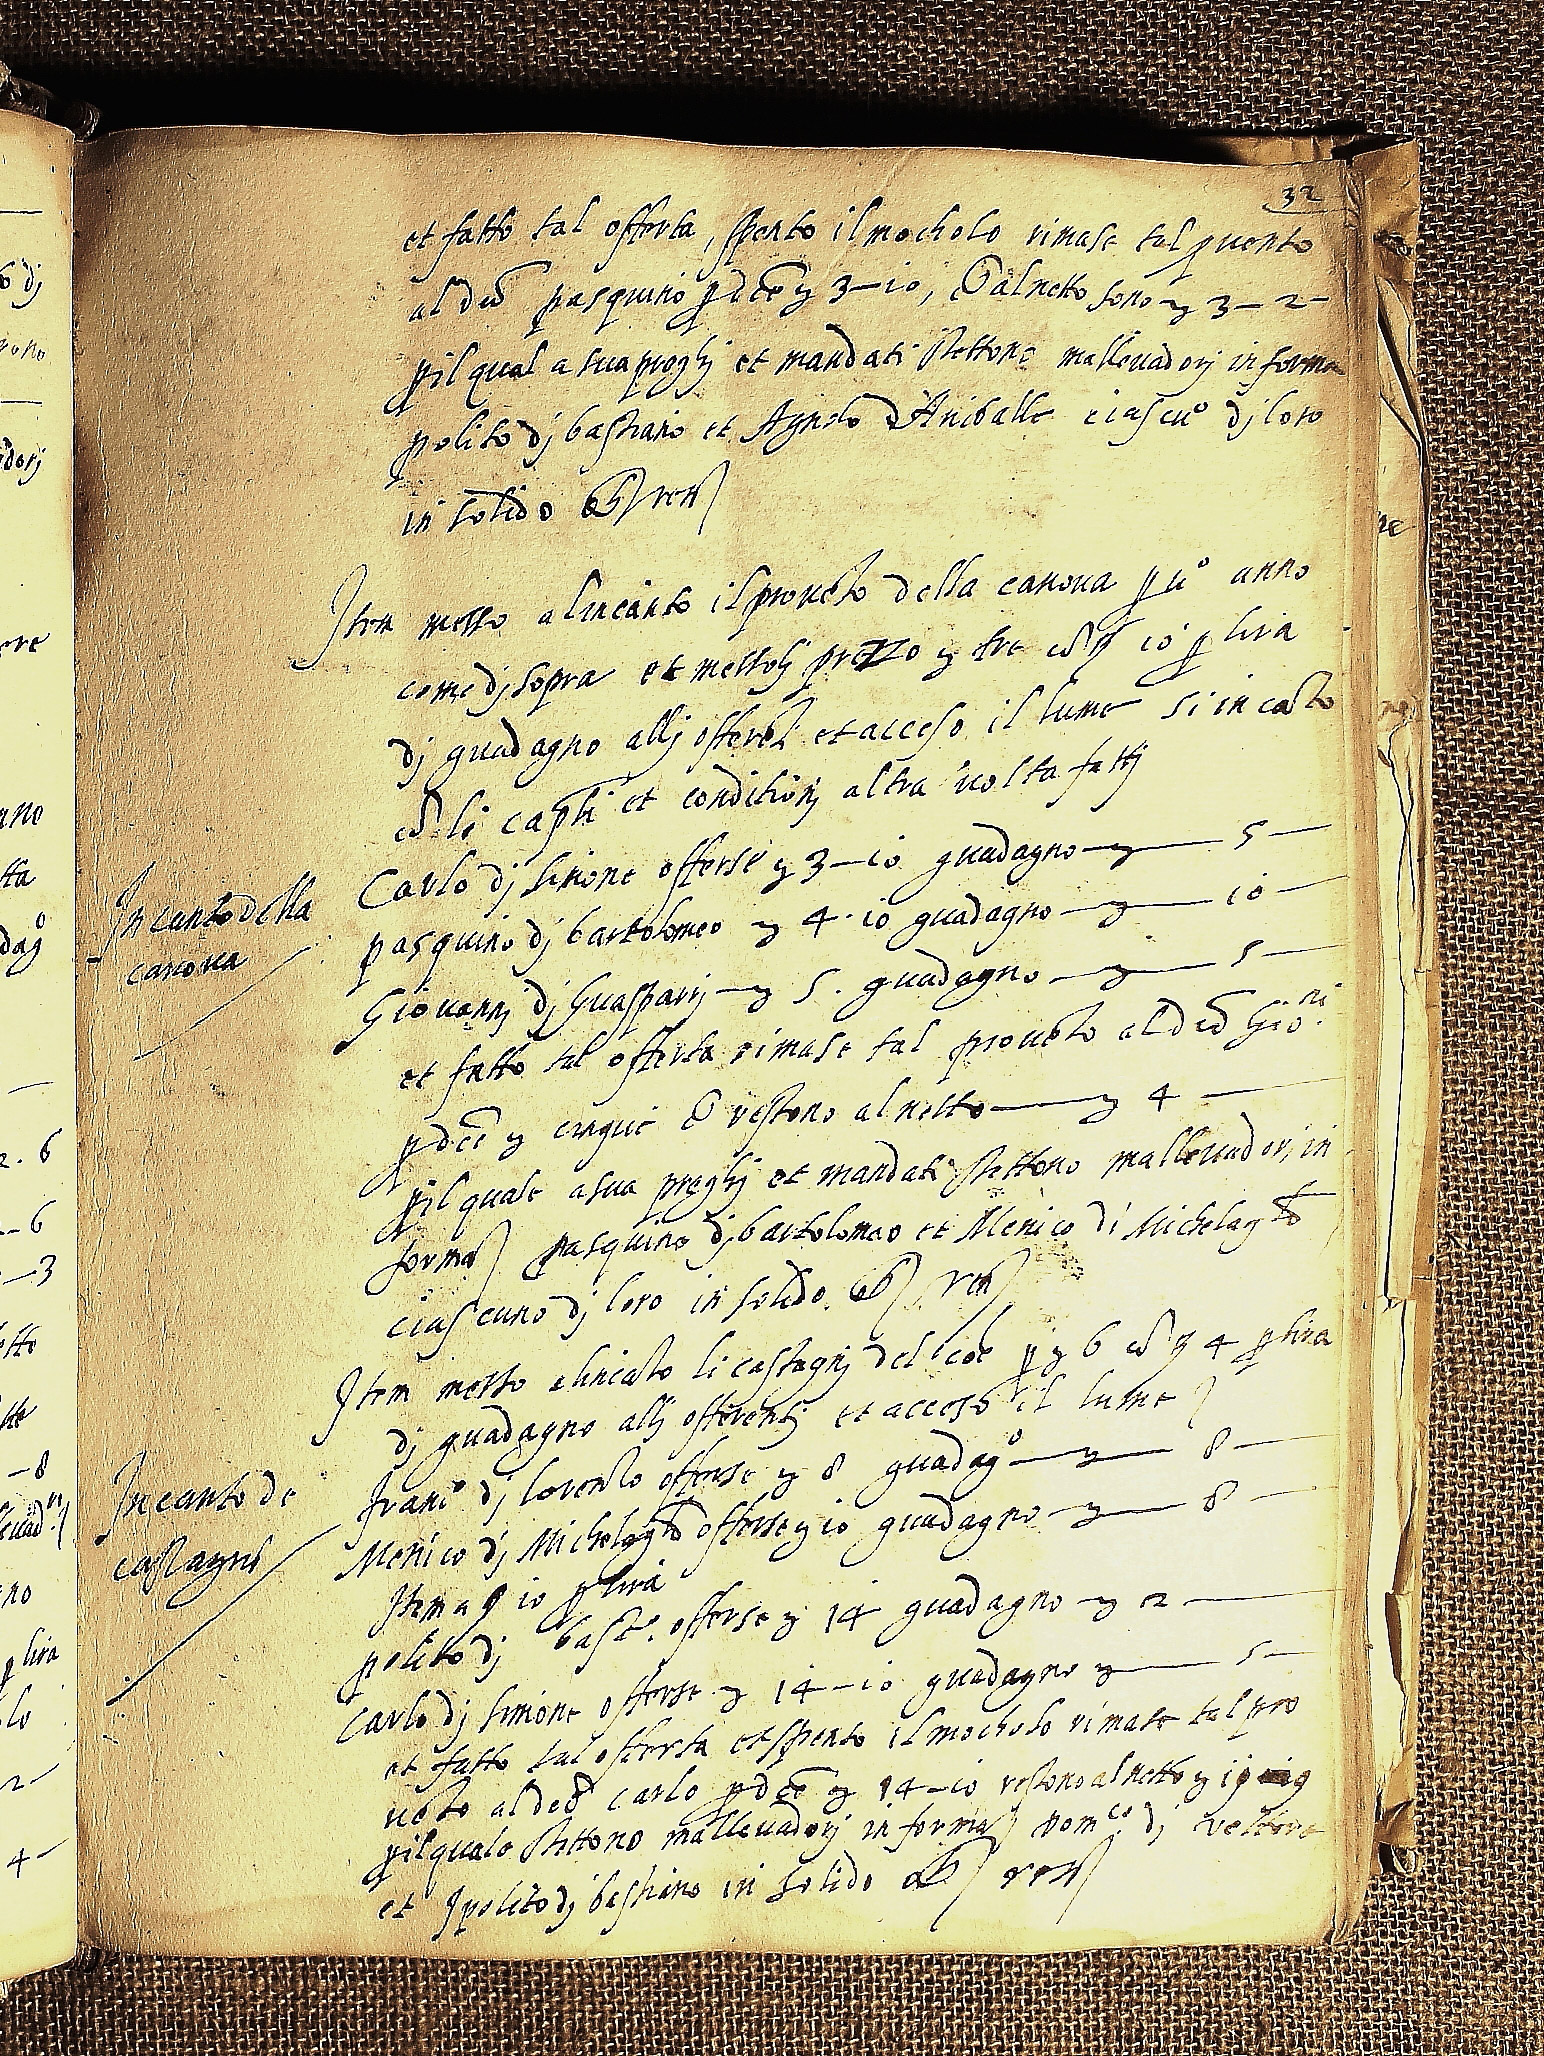 32
et fatto tal offerta, spento il mocholo rimase tal pvento
al do pasquino p dco 3-10, al netto sono 3-2-
pil qual a sua preghj et mandati stettono mallevadorj in forma
polito dj bastiano et Agnolo d'Aniballe ciascuo dj loro
in solido
Item messo alincanto il provento della canova p uo anno
come dj sopra et messolj prezzo tre co 10 p lira
dj guadagno allj offerentj et acceso il lume si in cato
co li capli et conditionj altra volta fattj
Incanto della
canova
Carlo dj simone offerse 3-10 guadagno 5
pasquino dj bartolomeo 4.10 guadagno 10
Giovannj dj Guasparj 5. guadagno 5
et fatto tal offerta rimase tal provento al do Gio.ni
p dco cinque restono al netto 4
pil quale a sua preghj et mandati stettono mallevadorj in
forma pasquino dj bartolomeo et Menico di Michelagto
ciascuno dj loro in solido
Item messo alincato li castagnj del coe p 6 co 4 p lira
dj guadagno allj offerentj et acceso il lume
Incanto de
castagni
Franco dj lorenzo offerse 8 guadago 8
Menico dj Michelagto offerse 10 guadagno 8
Item a 10 p lira
polito dj basto. offerse 14 guadagno 2
Carlo dj simone offerse 14-10 guadagno 5
et fatto tal offerta et spento il mocholo rimase tal pro
vento al do carlo p dco 14-10 restono al netto
pil quale stettono mallevadorj in forma Domco dj vettore
et Ipolito dj bastiano in solido